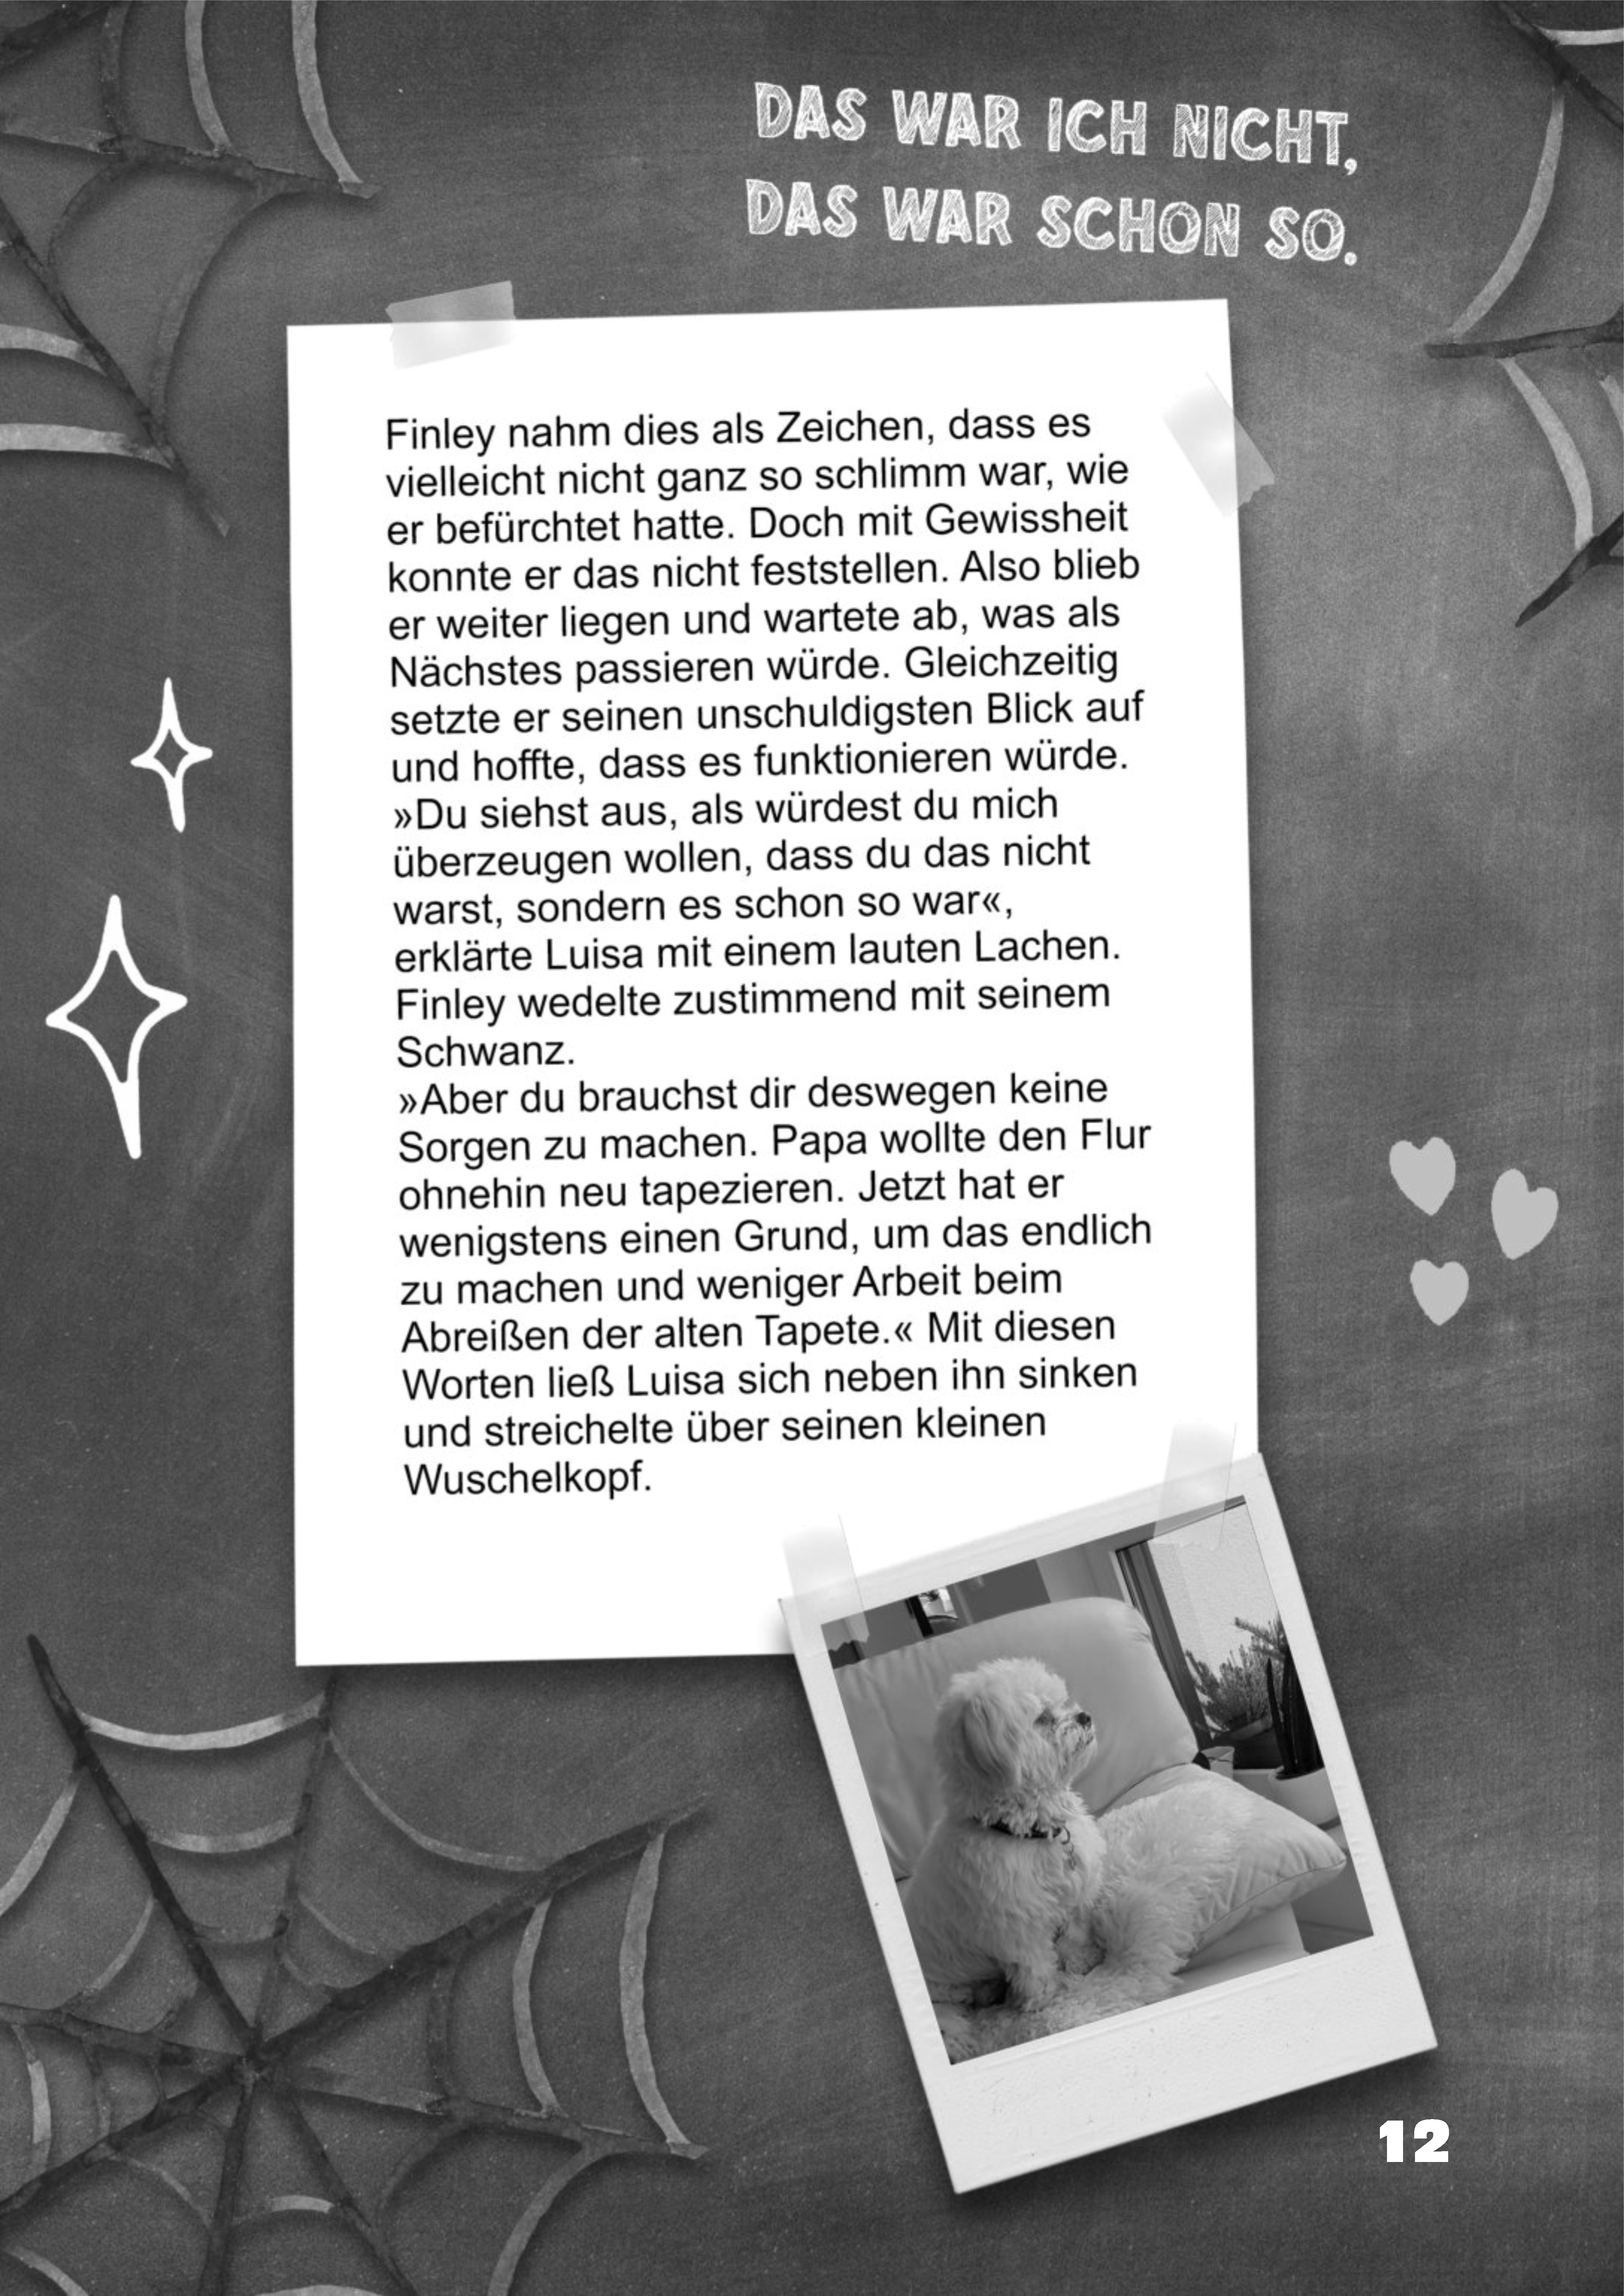 DAS WAR ICH NICHT,
DAS WAR SCHON SO.
Finley nahm dies als Zeichen, dass es
vielleicht nicht ganz so schlimm war, wie
er befürchtet hatte. Doch mit Gewissheit
konnte er das nicht feststellen. Also blieb
er weiter liegen und wartete ab, was als
Nächstes passieren würde. Gleichzeitig
setzte er seinen unschuldigsten Blick auf
und hoffte, dass es funktionieren würde.
»Du siehst aus, als würdest du mich
überzeugen wollen, dass du das nicht
warst, sondern es schon so war«,
erklärte Luisa mit einem lauten Lachen.
Finley wedelte zustimmend mit seinem
Schwanz.
»Aber du brauchst dir deswegen keine
Sorgen zu machen. Papa wollte den Flur
ohnehin neu tapezieren. Jetzt hat er
wenigstens einen Grund, um das endlich
zu machen und weniger Arbeit beim
Abreißen der alten Tapete.« Mit diesen
Worten ließ Luisa sich neben ihn sinken
und streichelte über seinen kleinen
Wuschelkopf.
12